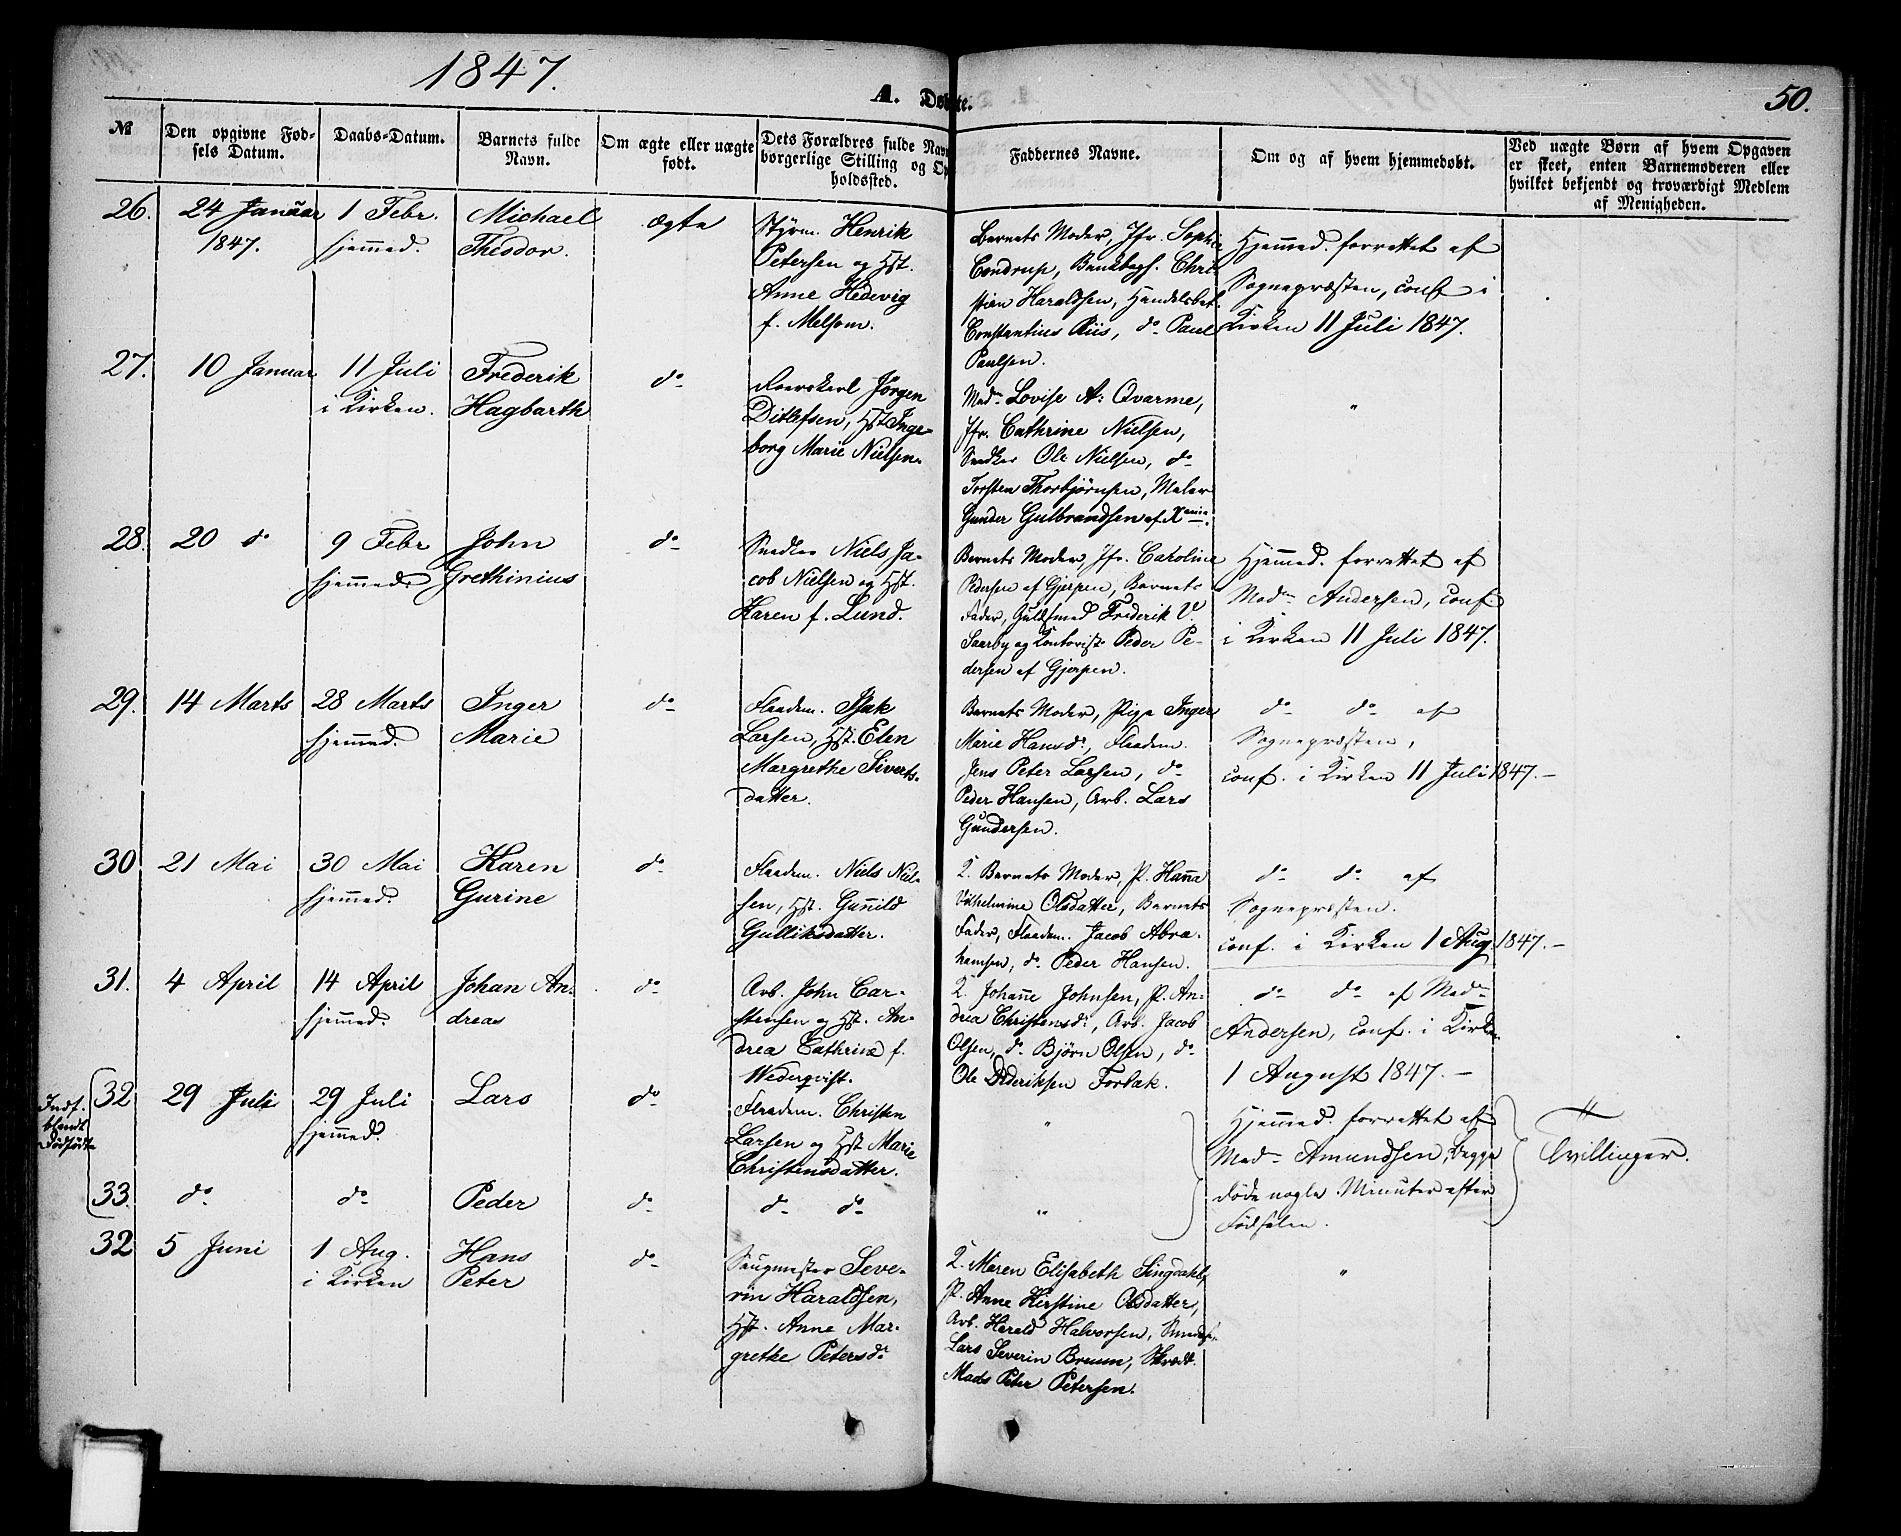 1847.
A. Døbte.
50.
№
Den opgivne Fød-
sels Datum.
Daabs-Datum.
Barnets fulde
Navn.
Om ægte eller uægte
født.
Dets Forældres fulde Navn
borgerlige Stilling og Op
holdssted.
Faddernes Navne.
Om og af hvem hjemmedøbt.
Ved uægte Børn af hvem Opgaven
er skeet, enten Barnemoderen eller
hvilket bekjendt og troværdigt Medlem
af Menigheden.
26.
24 Januar
1847.
1 Febr.
hjemmed.
Michael
Theodor.
ægte
Styrm. Henrik
Petersen og Hst.
Anne Hedevig
f. Melsom.
Barnets Moder, Jfr. Sophie
Condrup, Bankbogh. Chri-
stian Haraldsen, Handelsbet.
Constantius Riis, do Paul
Paulsen.
Hjemmed. forrettet af
Sognepræsten, conf i
Kirken 11 Juli 1847.
27.
10 Januar
11 Juli
i Kirken.
Frederik
Hagbarth
do
Jørgen
Ditlefsen, Hst Inge-
borg Marie Nielsen.
Mad. Lovise A: Qvarme,
Jfr. Cathrine Nielsen,
Snedker Ole Nielsen, do
Torsten Thorbjørnsen, Maler
Gunder Gulbrandsen af Xania.
"
28.
20 do
9 Febr
hjemmed.
John
Grethinius
do
Snedker Niels Ja-
cob Nielsen og Hst.
Karen f. Lund.
Barnets Moder, Jfr. Caroline
Pedersen af Gjerpen, Barnets
Fader, Guldsmed Frederik V.
Saarby og Kontorist Peder Pe-
dersen af Gjerpen.
Hjemmed. forrettet af
Mad. Andersen, conf
i Kirken 11 Juli 1847.
29.
14 Marts
28 Marts
hjemmed.
Inger
Marie
do
Flaadem. Isak
Larsen, Hst. Elen
Margrethe Siverts-
datter.
Barnets Moder, Pige Inger
Marie Hansdr, Flaadem.
Jens Peter Larsen, do
Peder Hansen, Arb. Lars
Gundersen.
do do af
Sognepræsten,
conf. i Kirken 11 Juli 1847.-
30
21 Mai
30 Mai
hjemmed.
Karen
Gurine
do
Flaadem. Niels Niel-
sen, Hst. Gunild
Gulliksdatter.
Barnets Moder, P. Hanna
Vilhelmine Olsdatter, Barnets
Fader, Flaadem. Jacob Abra-
hamsen, do Peder Hansen.
do do af
Sognepræsten.
conf. i Kirken 1 Aug. 1847.-
31.
4 April
14 April
hjemmed.
Johan An-
dreas
do
Arb. John Car-
stensen og Hst. An-
drea Cathrine f.
Wederqvist.
Johanne Johnsen, P. An-
drea Christensdr, Arb. Jacob
Olsen, do Bjørn Olsen, do
Ole Dideriksen Forbak.
do do af Mad.
Andersen, conf. i Kirken
1 August 1847.-
Indf.
blandt
Dødfødte
32
29 Juli
29 Juli
hjemmed.
Lars
do
Flaadem. Christen
Larsen og Hst Marie
Christensdatter.
"
Hjemmed. forrettet af
Mad. Amundsen, begge
døde nogle Minuter efter
Fødselen.
Tvillinger.
33.
do
do
Peder
do
do do
"
32
5 Juni
1 Aug.
i Kirken
Hans
Peter
do
Saugmester Seve-
rin Haraldsen,
Hst. Anne Mar-
grethe Petersdr
Maren Elisabeth Singdahl,
P. Anne Kirstine Olsdatter,
Arb. Harald Halvorsen,
Lars Severin Bruun, Skræd.
Mads Peter Petersen.
"